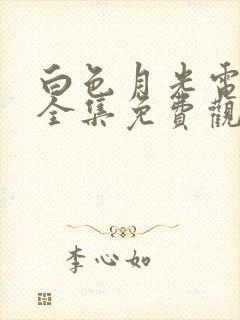 白色月光電
全集免費觀
李心如